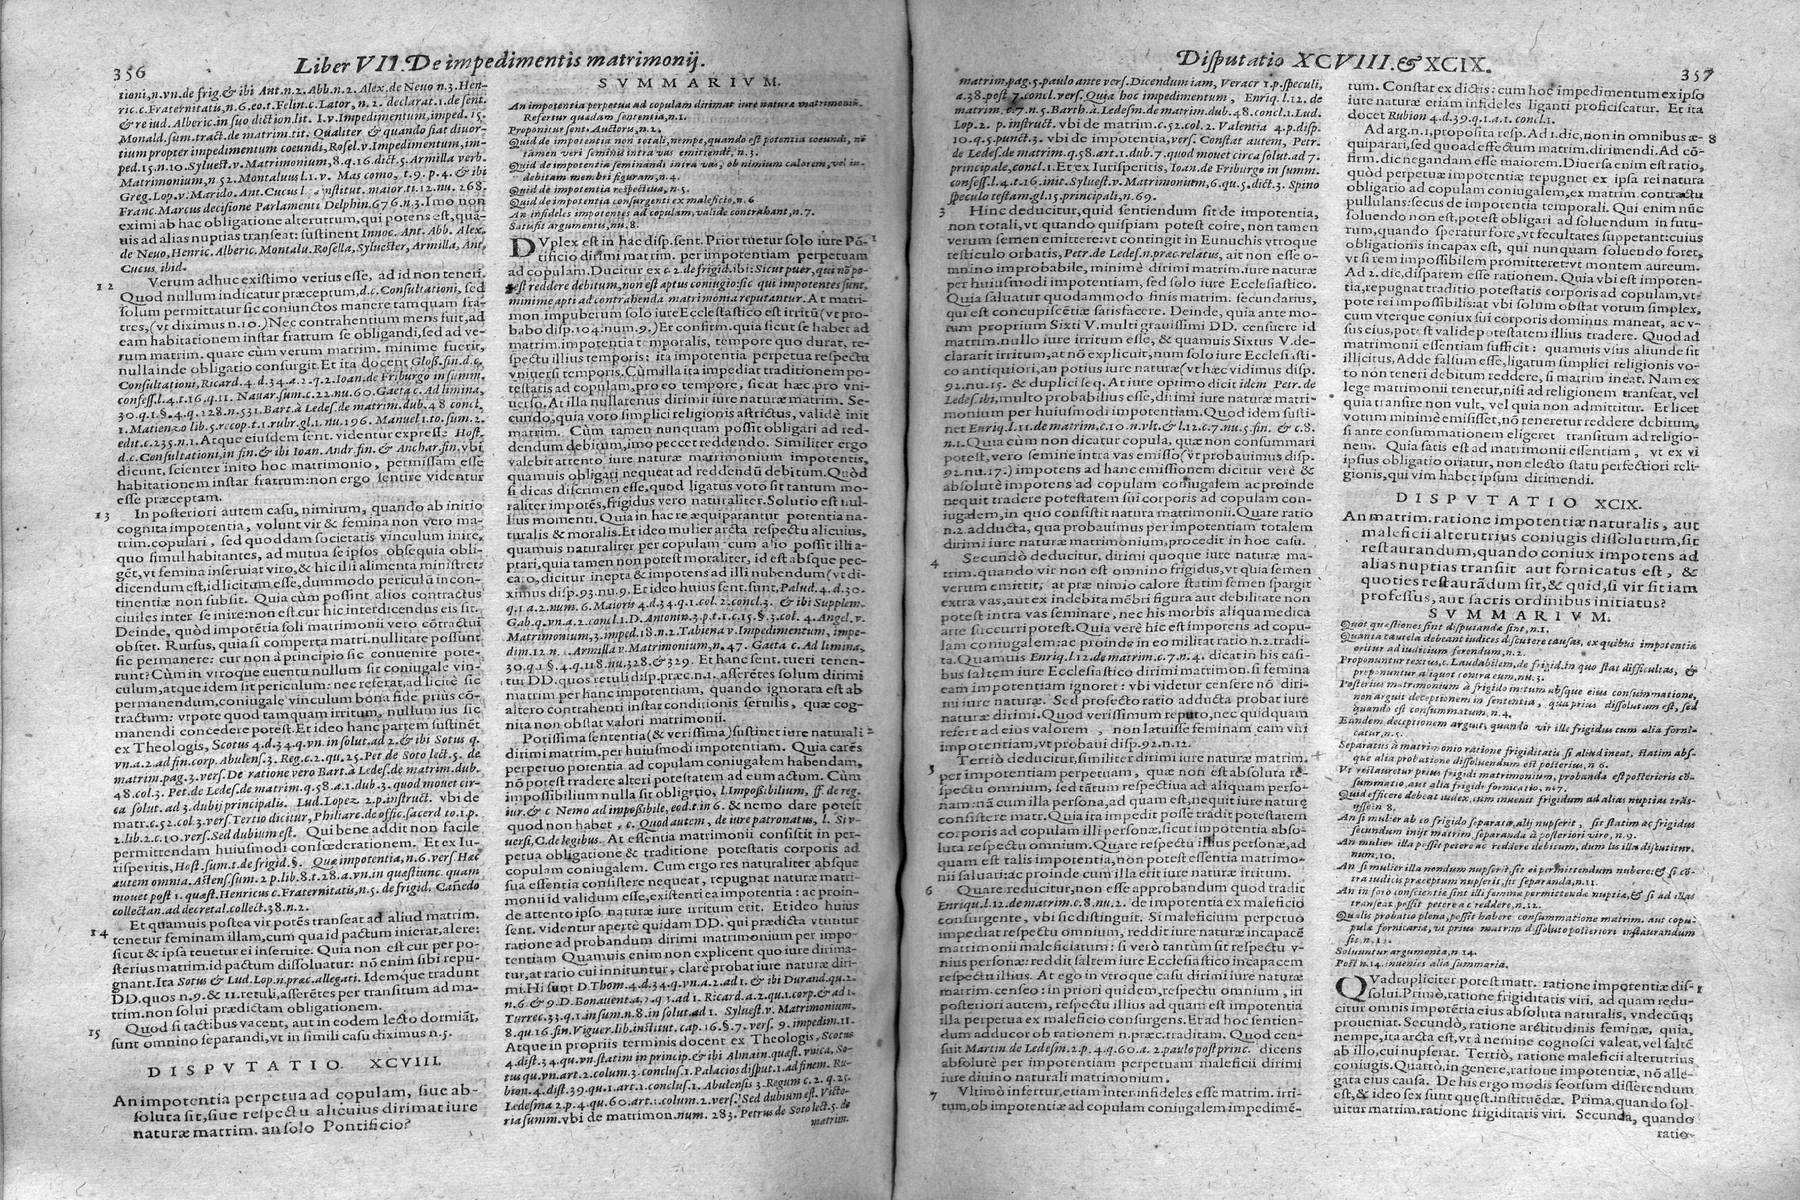 356
Liber VII. De impedimentis matrimonij.
tioni, n. vn. de frig. & ibi Ant. n. 2. Abb. n. 2. Alex. de Neuo n. 3. Hen-
ric. c. Fraternitatis, n. 6. eo. t. Felin. c. Lator, n. 2. declarat. 1. de sent.
& re iud. Alberic. in suo diction. lit. I. v. Impedimentum, imped. 15.
Monald. sum. tract. de matrim. tit. Qualiter & quando fiat diuor-
tium propter impedimentum coeundi, Rosel. v. Impedimentum, im-
ped. 15. n. 10. Syluest. v. Matrimonium, 8. q. 16. dict. 5. Armilla verb.
Matrimonium, n. 52. Montaluus l. 1. v. Mas como, t. 9. p. 4. & ibi
Greg. Lop. v. Marido. Ant. Cucus l. institut. maior. ti. 12. nu. 268.
Franc. Marcus decisione Parlamenti Delphin. 676. n. 3. Imo non
eximi ab hac obligatione alterutrum, qui potens est, quã-
uis ad alias nuptias transeat: sustinent Innoc. Ant. Abb. Alex.
de Neuo, Henric. Alberic. Montalu. Rosella, Syluester, Armilla, Ant.
Cucus, ibid.
12 Verum adhuc existimo verius esse, ad id non teneri.
Quod nullum indicatur præceptum, d. c. Consultationi, sed
solum permittatur sic coniunctos manere tamquam fra-
tres, (vt diximus n. 10.) Nec contrahentium mens fuit, ad
eam habitationem instar fratrum se obligandi, sed ad ve-
rum matrim. quare cùm verum matrim. minime fuerit,
nulla inde obligatio consurgit. Et ita docent Gloss. fin. d. c.
Consultationi, Ricard. 4. d. 34. a. 2. q. 2. Ioan. de Friburgo in summ.
confess. l. 4. t. 16. q. 11. Nauar. sum. c. 22. nu. 60. Gaeta c. Ad limina,
30. q. 1. §. 4. q. 128. n. 531. Bart. à Ledes. de matrim. dub. 48 concl.
1. Matienzo lib. 5. recop. t. 1. rubr. gl. 1. nu. 196. Manuel 1. to. sum. 2.
edit. c. 235. n. 1. Atque eiusdem sent. videntur expresse Host.
d. c. Consultationi, in fin. & ibi Ioan. Andr. fin. & Anchar. fin, vbi
dicunt, scienter inito hoc matrimonio, permissam esse
habitationem instar fratrum: non ergo sentire videntur
esse præceptam.
13 In posteriori autem casu, nimirum, quando ab initio
cognita impotentia, volunt vir & femina non vero ma-
trim. copulari, sed quoddam societatis vinculum inire,
quo simul habitantes, ad mutua se ipsos obsequia obli-
gẽt, vt femina inseruiat viro, & hic illi alimenta ministret:
dicendum est, id licitum esse, dummodo periculũ incon-
tinentiæ non subsit. Quia cùm possint alios contractus
ciuiles inter se inire: non est cur hic interdicendus eis sit.
Deinde, quòd impotẽtia soli matrimonii vero cõtractui
obstet. Rursus, quia si comperta matri. nullitate possunt
sic permanere: cur non à principio sic conuenite pote-
runt? Cùm in vtroque euentu nullum sit coniugale vin-
culum, atque idem sit periculum: nec referat, ad licitè sic
permanendum, coniugale vinculum bona fide prius cõ-
tractum: vtpote quod tamquam irritum, nullum ius sic
manendi concedere potest. Et ideo hanc partem sustinẽt
ex Theologis, Scotus 4. d. 34. q. vn. in solut. ad 2. & ibi Sotus q.
vn. a. 2. ad fin. corp. Abulens. 3. Reg. c. 2. qu. 25. Pet de Soto lect. 5. de
matrim. pag. 3. vers. De ratione vero Bart. à Ledes. de matrim. dub.
48. col. 3. Pet. de Ledes. de matrim. q. 58. a. 1. dub. 3. quod mouet cir-
ca solut. ad 3. dubij principalis. Lud. Lopez 2. p. instruct. vbi de
matr. c. 52. col. 3. vers. Tertio dicitur, Philiarc. de offic. sacerd. to. 1. p.
2. lib. 2. c. 10. vers. Sed dubium est. Qui bene addit non facile
permittendam huiusmodi confœderationem. Et ex Iu-
risperitis, Host. sum. t. de frigid. §. Quæ impotentia, n. 6. vers. Hæc
autem omnia. Astens. sum. 2. p. lib. 8. t. 28. a. vn. in quæstiunc. quam
mouet post 1. quæst. Henricus c. Fraternitatis, n. 5. de frigid. Cañedo
collectan. ad decretal. collect. 38. n. 2.
14 Et quamuis postea vir potẽs transeat ad aliud matrim.
tenetur feminam illam, cum qua id pactum inierat, alere:
sicut & ipsa teuetur ei inseruite. Quia non est cur per po-
sterius matrim. id pactum dissoluatur: nõ enim sibi repu-
gnant. Ita Sotus & Lud. Lop. n. præc. allegati. Idemque tradunt
DD. quos n. 9. & 11. retuli, asserẽtes per transitum ad ma-
trim. non solui prædictam obligationem.
15 Quod si tactibus vacent, aut in eodem lecto dormiãt,
sunt omnino separandi, vt in simili casu diximus n. 5.
DISPVTATIO. XCVIII.
An impotentia perpetua ad copulam, siue ab-
soluta sit, siue respectu alicuius dirimat iure
naturæ matrim. an solo Pontificio?
SVMMARIVM.
An impotentia perpetua ad copulam dirimat iure naturæ matrimoniũ.
Refertur quædam sententia, n. 1.
Proponitur sent. Auctoris, n. 2.
Quid de impotentia non totali, nempe, quando est potentia coeundi, nõ
tamen veri seminis intra vas emittendi, n. 3.
Quid de impotentia seminandi intra vas, ob nimium calorem, vel in-
debitam membri figuram, n. 4.
Quid de impotentia respectiua, n. 5.
Quid de impotentia consurgenti ex maleficio, n. 6
An infideles impotentes ad copulam, valide contrahant, n. 7.
Satisfit argumentis, nu. 8.
DVplex est in hac disp. sent. Prior tuetur solo iure Põ- 1
tificio dirimi matrim. per impotentiam perpetuam
ad copulam. Ducitur ex c. 2. de frigid. ibi: Sicut puer, qui nõ po-
test reddere debitum, non est aptus coniugio: sic qui impotentes sunt,
minime apti ad contrahenda matrimonia reputantur. At matri-
mon impuberum solo iure Ecclestastico est irritũ (vt pro-
babo disp. 104. num. 9.) Et confirm. quia sicut se habet ad
matrim. impotentia temporalis, tempore quo durat, re-
spectu illius temporis: ita impotentia perpetua respectu
vniuersi temporis. Cùm illa ita impediat traditionem po-
testatis ad copulam, pro eo tempore, sicat hæc pro vni-
uerso. At illa nullatenus dirimit iure naturæ matrim. Se-
cundo, quia voto simplici religionis astrictus, validè init
matrim. Cùm tamen nunquam possit obligari ad red-
dendum debitum, imo peccet reddendo. Similiter ergo
valebit attento iure naturæ matrimonium impotentis,
quamuis obligari nequeat ad reddendũ debitum. Quòd
si dicas discrimen esse, quod ligatus voto sit tantum mo-
raliter impotẽs, frigidus vero naturaliter. Solutio est nul-
lius momenti. Quia in hac re æquiparantur potentia na-
turalis & moralis. Et ideo mulier arcta respectu alicuius,
quamuis naturaliter per copulam cum alio possit illi a-
ptari, quia tamen non potest moraliter, id est absque pec-
cato, dicitur inepta & impotens ad illi nubendum (vt di-
ximus disp. 93. nu. 9. Et ideo huius sent. sunt, Palud. 4. d. 30.
q. 1. a. 2. num. 6. Maioris 4. d. 34. q. 1. col. 2. concl. 3. & ibi Supplem.
Gab. q. vn. a. 2. concl. 1. D. Antonin. 3. p. t. 1. c. 15. §. 3. col. 4. Angel. v.
Matrimonium, 3. imped. 18. n. 2. Tabiena v. Impedimentum, impe-
dim. 12. n. . Armilla v. Matrimonium, n. 47. Gaeta c. Ad limina,
30. q. 1 §. 4. q. 118. nu. 328. & 329. Et hanc sent. tueri tenen-
tur DD. quos retuli disp. præc. n. 1. asserẽtes solum dirimi
matrim per hanc impotentiam, quando ignorata est ab
altero contrahenti instar conditionis seruilis, quæ cog-
nita non obstat valori matrimonii.
Potissima sententia (& verissima) sustinet iure naturali 2
dirimi matrim. per huiusmodi impotentiam. Quia carẽs
perpetuo potentia ad copulam coniugalem habendam,
nõ potest tradere alteri potestatem ad eum actum. Cùm
impossibilium nulla sit obligatio, l. Impossibilium, ff. de reg.
iur. & c. Nemo ad impossibile, eod. t. in 6. & nemo dare potest
quod non habet, c. Quod autem, de iure patronatus, l. Siv-
uersi, C. de legibus. At essentia matrimonii consistit in per-
petua obligatione & traditione potestatis corporis ad
copulam coniugalem. Cum ergo res naturaliter absque
sua essentia consistere nequeat, repugnat naturæ matri-
monii id validum esse, existenti ea impotentia: ac proin-
de attento ipso naturæ iure irritum erit. Et ideo huius
sent. videntur aperte quidam DD. qui prædicta vtuntur
ratione ad probandum dirimi matrimonium per impo-
tentiam Quamuis enim non explicent quo iure dirima-
tur, at ratio cui innituntur, clarè probat iure naturæ diri-
mi. Hi sunt D. Thom. 4. d. 34. q. vn. a. 2. ad 1. & ibi Durand. qu. 2.
n. 6. & 9. D. Bonauent. a. 2. q. 3. ad 1. Ricard. a. 2. qu. 1. corp. & ad 1.
Turrec. 33. q. 1 in sum. n. 8. in solut. ad 1. Syluest. v. Matrimonium,
8. qu. 16. fin. Viguer. lib. institut. cap. 16. §. 7. vers. 9. impedim. 11.
Atque in propriis terminis docent ex Theologis, Scotus
4. dist. 34. qu. vn. statim in princip. & ibi Almain. quæst. vnica, So-
tus qu. vn. art. 2. colum. 3. conclus. 1. Palacios disput. 1. ad finem. Ru-
bion. 4. dist. 39. qu. 1. art. 1. conclus. 1. Abulensis 3. Regum c. 2. q. 25.
Ledesma 2. p. 4. qu. 60. art. 1. colum. 2. vers. Sed dubium est. Victo-
ria summ. vbi de matrimon. num. 283. Petrus de Soto lect. 5. de
matrim.
Disputatio XCVIII. & XCIX.
357
matrim. pag. 5. paulo ante vers. Dicendum iam, Veracr 1. p. speculi,
a. 38. post 7. concl. vers. Quia hoc impedimentum, Enriq. l. 12. de
matrim. c. 7. n. 5. Barth. à Ledesm. de matrim. dub. 48. concl. 1. Lud.
Lop. 2. p. instruct. vbi de matrim. c. 52. col. 2. Valentia 4. p. disp.
10. q. 5. punct. 3. vbi de impotentia, vers. Constat autem, Petr.
de Ledes. de matrim. q. 58. art. 1. dub. 7. quod mouet circa solut. ad 7.
principale, concl. 1. Et ex Iurisperitis, Ioan. de Friburgo in summ.
confess. l. 4. t. 16. init. Syluest. v. Matrimonium, 6. qu. 5. dict. 3. Spino
speculo testam. gl. 15. principali, n. 69.
3 Hinc deducitur, quid sentiendum sit de impotentia,
non totali, vt quando quispiam potest coire, non tamen
verum semen emittere: vt contingit in Eunuchis vtroque
testiculo orbatis, Petr. de Ledes. n. præc. relatus, ait non esse o-
mnino improbabile, minimè dirimi matrim. iure naturæ
per huiusmodi impotentiam, sed solo iure Ecclesiastico.
Quia saluatur quodammodo finis matrim. secundarius,
qui est concupiscẽtiæ satisfacere. Deinde, quia ante mo-
tum proprium Sixti V. multi grauissimi DD. censuere id
matrim. nullo iure irritum esse, & quamuis Sixtus V. de-
clararit irritum, at nõ explicuit, num solo iure Ecclesiasti-
co antiquiori, an potius iure naturæ (vt hæc vidimus disp.
92. nu. 15. & duplici seq. At iure optimo dicit idem Petr. de
Ledes. ibi, multo probabilius esse, dirimi iure naturæ matri-
monium per huiusmodi impotentiam. Quod idem susti-
net Enriq. l. 11. de matrim. c. 10. n. vlt. & l. 12. c. 7. nu. 5. fin. & c. 8.
n. 1. Quia cùm non dicatur copula, quæ non consummari
potest, vero semine intra vas emisso (vt probauimus disp.
92. nu. 17.) impotens ad hanc emissionem dicitur verè &
absolutè impotens ad copulam coniugalem ac proinde
nequit tradere potestatem sui corporis ad copulam con-
iugalem, in quo consistit natura matrimonii. Quare ratio
n. 2. adducta, qua probauimus per impotentiam totalem
dirimi iure naturæ matrimonium, procedit in hoc casu.
4 Secundò deducitur, dirimi quoque iure naturæ ma-
trim. quando vir non est omnino frigidus, vt quia semen
verum emittit, at præ nimio calore statim semen spargit
extra vas, aut ex indebita mẽbri figura aut debilitate non
potest intra vas seminare, nec his morbis aliqua medica
arte succurri potest. Quia verè hic est impotens ad copu-
lam coniugalem: ac proinde in eo militat ratio n. 2. tradi-
ta. Quamuis Enriq. l. 12. de matrim. c. 7. n. 4. dicat in his casi-
bus saltem iure Ecclesiastico dirimi matrim. si femina
eam impotentiam ignoret: vbi videtur censere nõ diri-
mi iure naturæ. Sed profecto ratio adducta probat iure
naturæ dirimi. Quod verissimum reputo, nec quidquam
refert ad eius valorem, non latuisse feminam eam viri
impotentiam, vt probaui disp. 92. n. 12.
5 Tertiò deducitur, similiter dirimi iure naturæ matrim.
per impotentiam perpetuam, quæ non est absoluta re-
spectu omnium, sed tãtum respectiua ad aliquam perso-
nam: nã cum illa persona, ad quam est, nequit iure naturæ
consistere matr. Quia ita impedit posse tradit potestatem
corporis ad copulam illi personæ, sicut impotentia abso-
luta respectu omnium. Quare respectu illius personæ, ad
quam est talis impotentia, non potest essentia matrimo-
nii saluari: ac proinde cum illa erit iure naturæ irritum.
6 Quarto reducitur, non esse approbandum quod tradit
Enriqu. l. 12. de matrim. c. 8. nu. 2. de impotentia ex maleficio
consurgente, vbi sic distinguit. Si maleficium perpetuò
impediat respectu omnium, reddit iure naturæ incapacẽ
matrimonii maleficiatum: si verò tantùm sit respectu v-
nius personæ: reddit saltem iure Ecclesiastico incapacem
respectu illius. At ego in vtroque casu dirimi iure naturæ
matrim. censeo: in priori quidem, respectu omnium, in
posteriori autem, respectu illius ad quam est impotentia
illa perpetua ex maleficio consurgens. Et ad hoc sentien-
dum adducor ob rationem n. præc. traditam. Quod cen-
suit Martin. de Ledesm. 2. p. 4. q. 60. a. 2. paulo post princ. dicens
absolutè per impotentiam perpetuam maleficii dirimi
iure diuino naturali matrimonium.
7 Vltimò infertur, etiam inter infideles esse matrim. irri-
tum, ob impotentiæ ad copulam coniugalem impedimẽ-
tum. Constat ex dictis: cum hoc impedimentum ex ipso
iure naturæ etiam infideles liganti proficiscatur. Et ita
docet Rubion 4. d. 39. q. 1. a. 1. concl. 1.
Ad arg. n. 1. proposita resp. Ad 1. dic, non in omnibus æ- 8
quiparari, sed quoad effectum matrim. dirimendi. Ad cõ-
firm. dic negandam esse maiorem. Diuersa enim est ratio,
quòd perpetuæ impotentiæ repugnet ex ipsa rei natura
obligatio ad copulam coniugalem, ex matrim. contractu
pullulans: secus de impotentia temporali. Qui enim nũc
soluendo non est, potest obligari ad soluendum in futu-
rum, quando speratur fore, vt fecultates suppetant: cuius
obligationis incapax est, qui nunquam soluendo foret,
vt si rem impossibilem promitteret: vt montem aureum.
Ad 2. dic, disparem esse rationem. Quia vbi est impoten-
tia, repugnat traditio potestatis corporis ad copulam, vt-
pote rei impossibilis: at vbi solum obstat votum simplex,
cum vterque coniux sui corporis dominus maneat, ac v-
sus eius, potest valide potestatem illius tradere. Quod ad
matrimonii essentiam sufficit: quamuis vsus aliunde sit
illicitus. Adde falsum esse, ligatum simplici religionis vo-
to non teneri debitum reddere, si matrim ineat. Nam ex
lege matrimonii tenetur, nisi ad religionem transeat, vel
quia transire non vult, vel quia non admittitur. Et licet
votum minimè emisisset, nõ teneretur reddere debitum,
si ante consummationem eligeret transitum ad religio-
nem. Quia satis est ad matrimonii essentiam, vt ex vi
ipsius obligatio oriatur, non electo statu perfectiori reli-
gionis, qui vim habet ipsum dirimendi.
DISPVTATIO XCIX.
An matrim. ratione impotentiæ naturalis, aut
maleficii alterutrius coniugis dissolutum, sit
restaurandum, quando coniux impotens ad
alias nuptias transiit aut fornicatus est, &
quoties restaurãdum sit, & quid, si vir sit iam
professus, aut sacris ordinibus initiatus?
SVMMARIVM.
Quot quæstiones sint disputandæ sint, n. 1.
Quanta cautela debeant iudices discutere causas, ex quibus impotentia
oritur ad iudicium ferendum, n. 2.
Proponuntur textus, c. Laudabilem, de frigid. in quo stat difficultas, &
proponuntur aliquot contra eum, nu. 3.
Posterius matrimonium à frigido initum absque eius consummatione,
non arguit deceptionem in sententia, qua prius dissolutum est, sed
quando est consummatum, n. 4.
Eandem deceptionem arguit, quando vir ille frigidus cum alia forni-
catur, n. 5.
Separatus à matrimonio ratione frigiditatis si aliud ineat, statim abs-
que alia probatione dissoluendum est posterius, n 6.
Vt restauretur prius frigidi matrimonium, probanda est posterioris cõ-
summatio, aut alia frigidi fornicatio, n. 7.
Quid efficere debeat iudex, cum inuenit frigidum ad alias nuptias trãs-
ijsse, n 8.
An si mulier ab eo frigido separata, alij nupserit, sit statim ac frigidus
secundum inijt matrim. separanda à posteriori viro, n. 9.
An mulier illa posset petere ac reddere debitum, dum lis illa discutitur,
num. 10.
An si mulier illa nondum nupserit, sit ei permittendum nubere: & si cõ-
tra iudicis præceptum nupserit, sit separanda, n. 11.
An in foro conscientiæ sint illi feminæ permittenda nuptiæ, & si ad illas
transeat, possit petere ac reddere, n. 12.
Qualis probatio plena, possit habere consummatione matrim. aut copu-
læ fornicariæ, vt prius matrim dissoluto posteriori instaurandum
sit, n. 13.
Soluuntur argumenta, n. 14.
Post n. 14. inuenies alia summaria.
QVadrupliciter potest matr. ratione impotentiæ dis- 1
solui. Primò, ratione frigiditatis viri, ad quam redu-
citur omnis impotẽtia eius absoluta naturalis, vndecũq;
proueniat. Secundò, ratione arctitudinis feminæ, quia,
nempe, ita arcta est, vt à nemine cognosci valeat, vel saltẽ
ab illo, cui nupserat. Tertiò, ratione maleficii alterutrius
coniugis. Quartò, in genere, ratione impotentiæ, nõ alle-
gata eius causa. De his ergo modis seorsum disserendum
est, & ideo sex sunt quæst. instituẽdæ. Prima, quando sol-
uitur matrim. ratione frigiditatis viri. Secunda, quando
ratio-